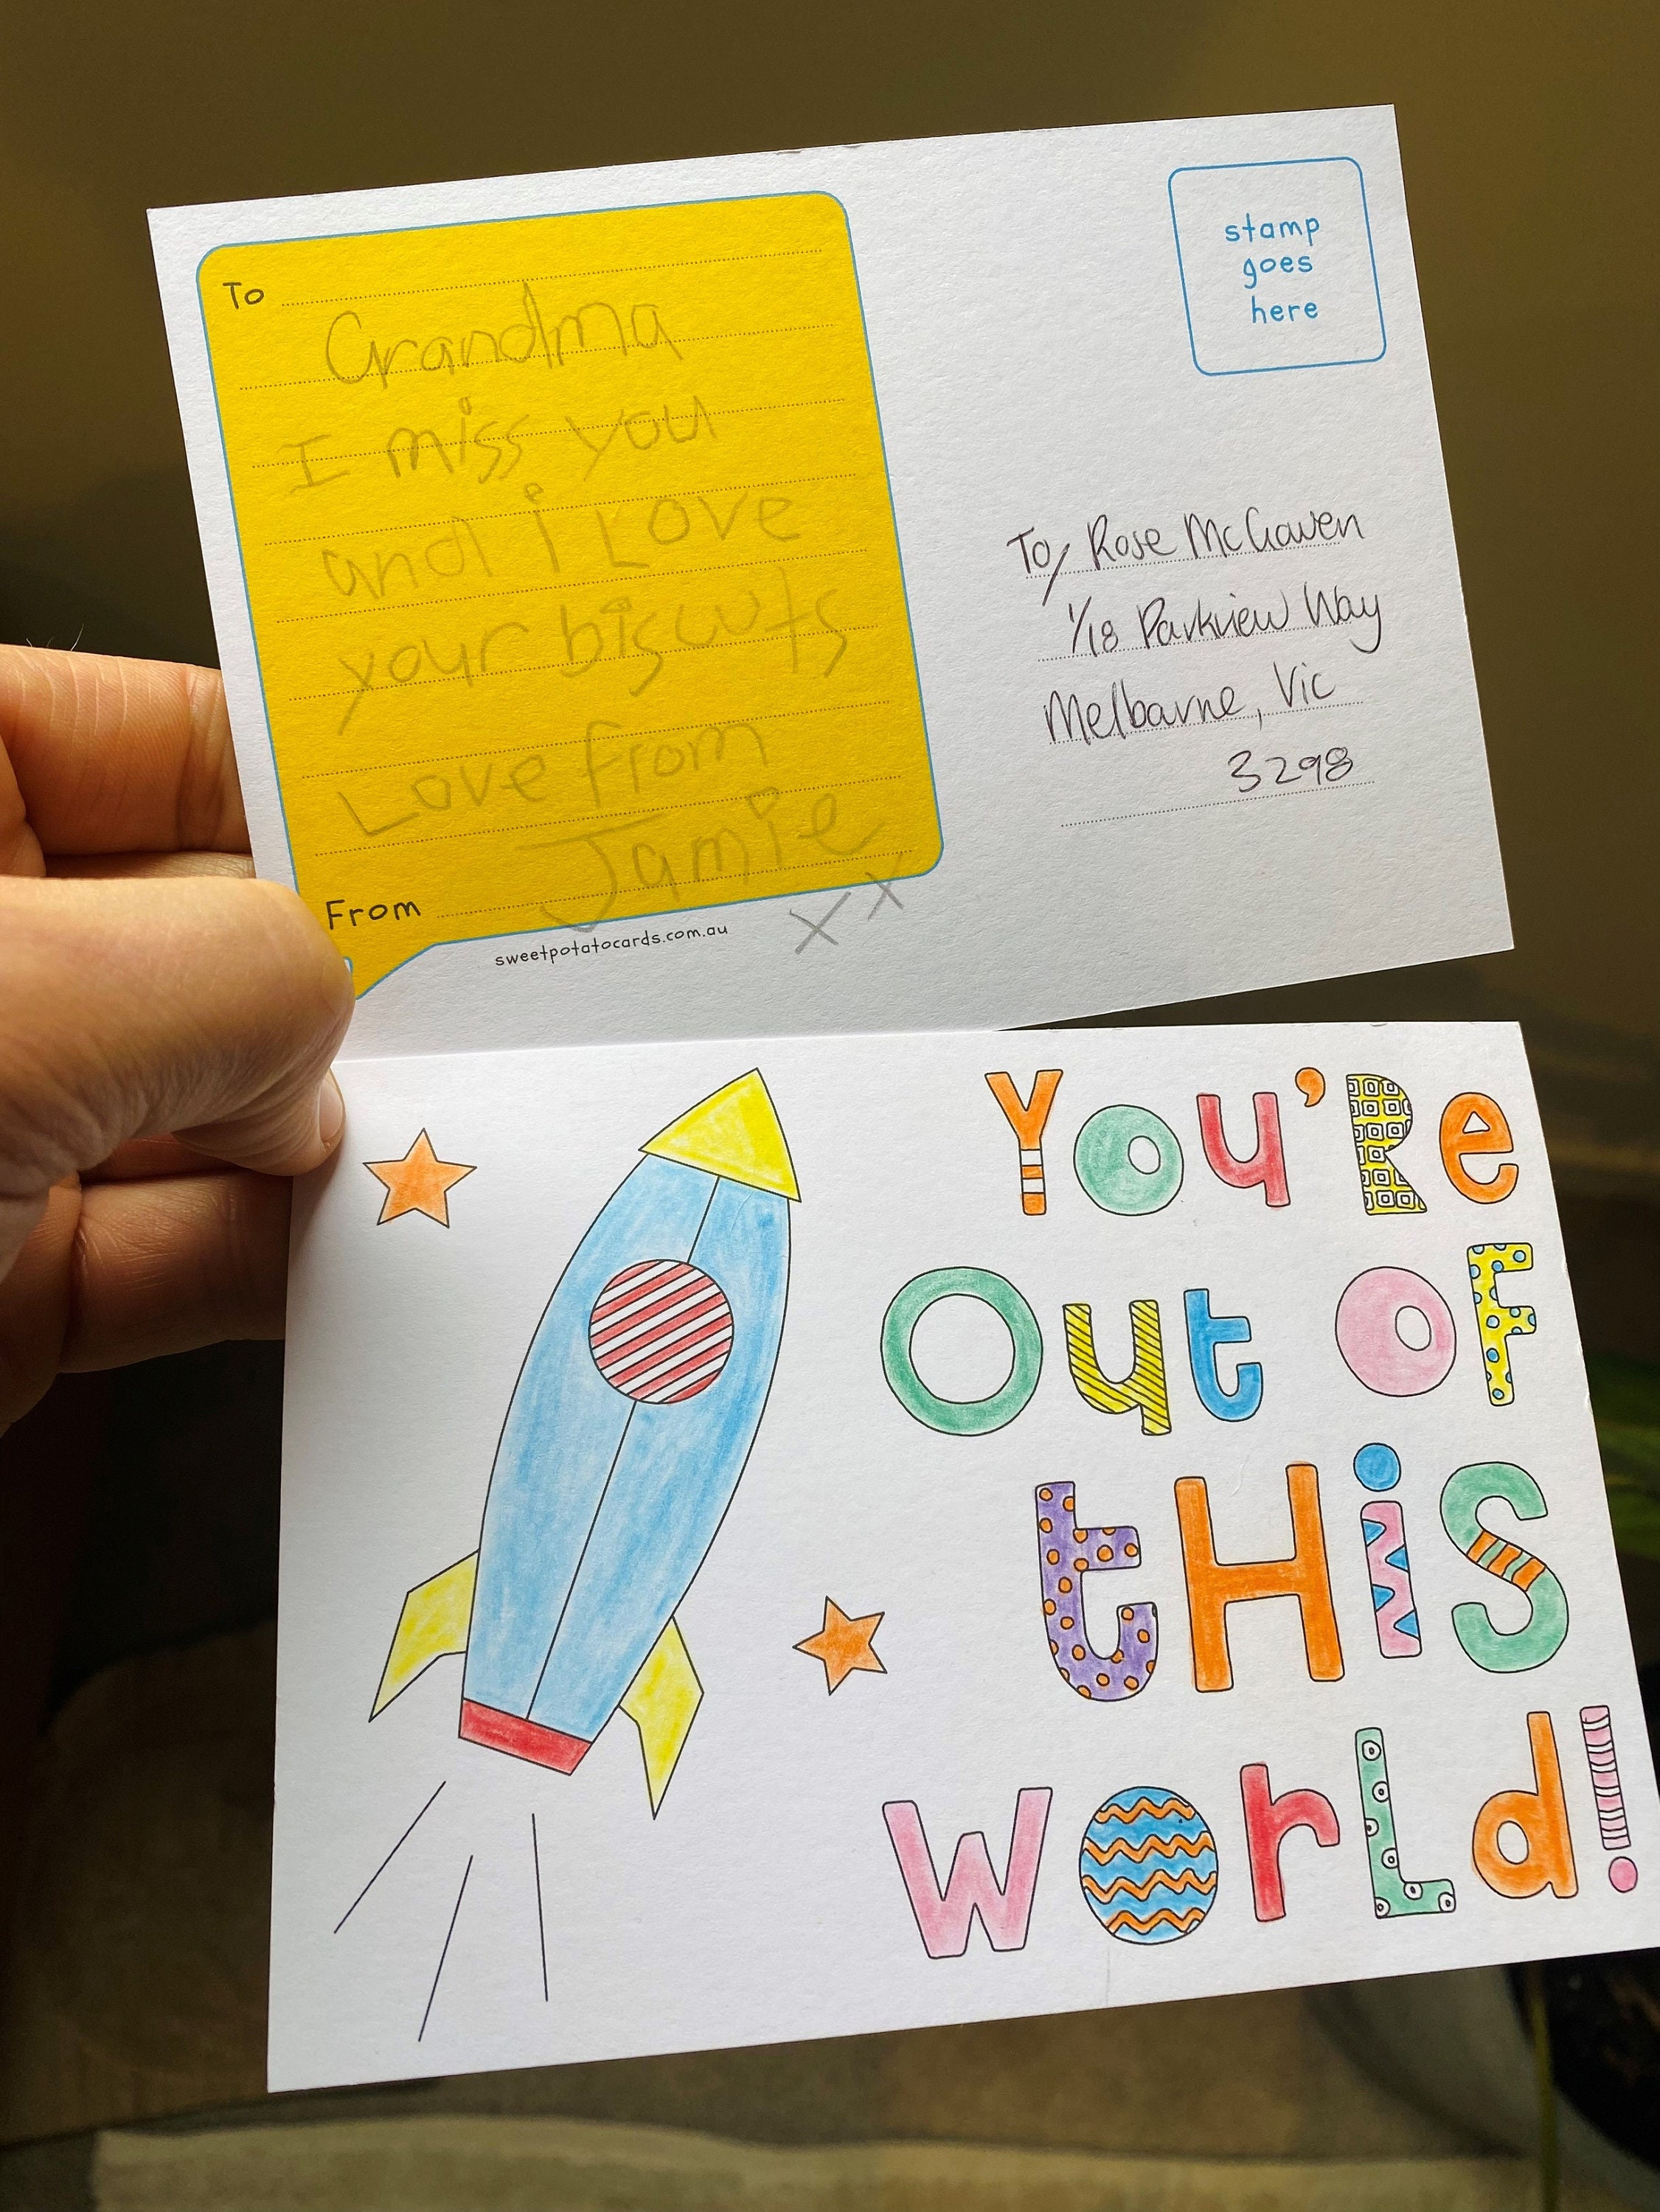 To
Grandma
I miss you
and i Love
your biscuts
Love from
Jamie
xx
From
sweetpotatocards.com.au
stamp
goes
here
To/ Rose McGaven
1/18 Parkview Way
Melbourne, Vic
3298
You'Re
Out OF
tHiS
WorLd!